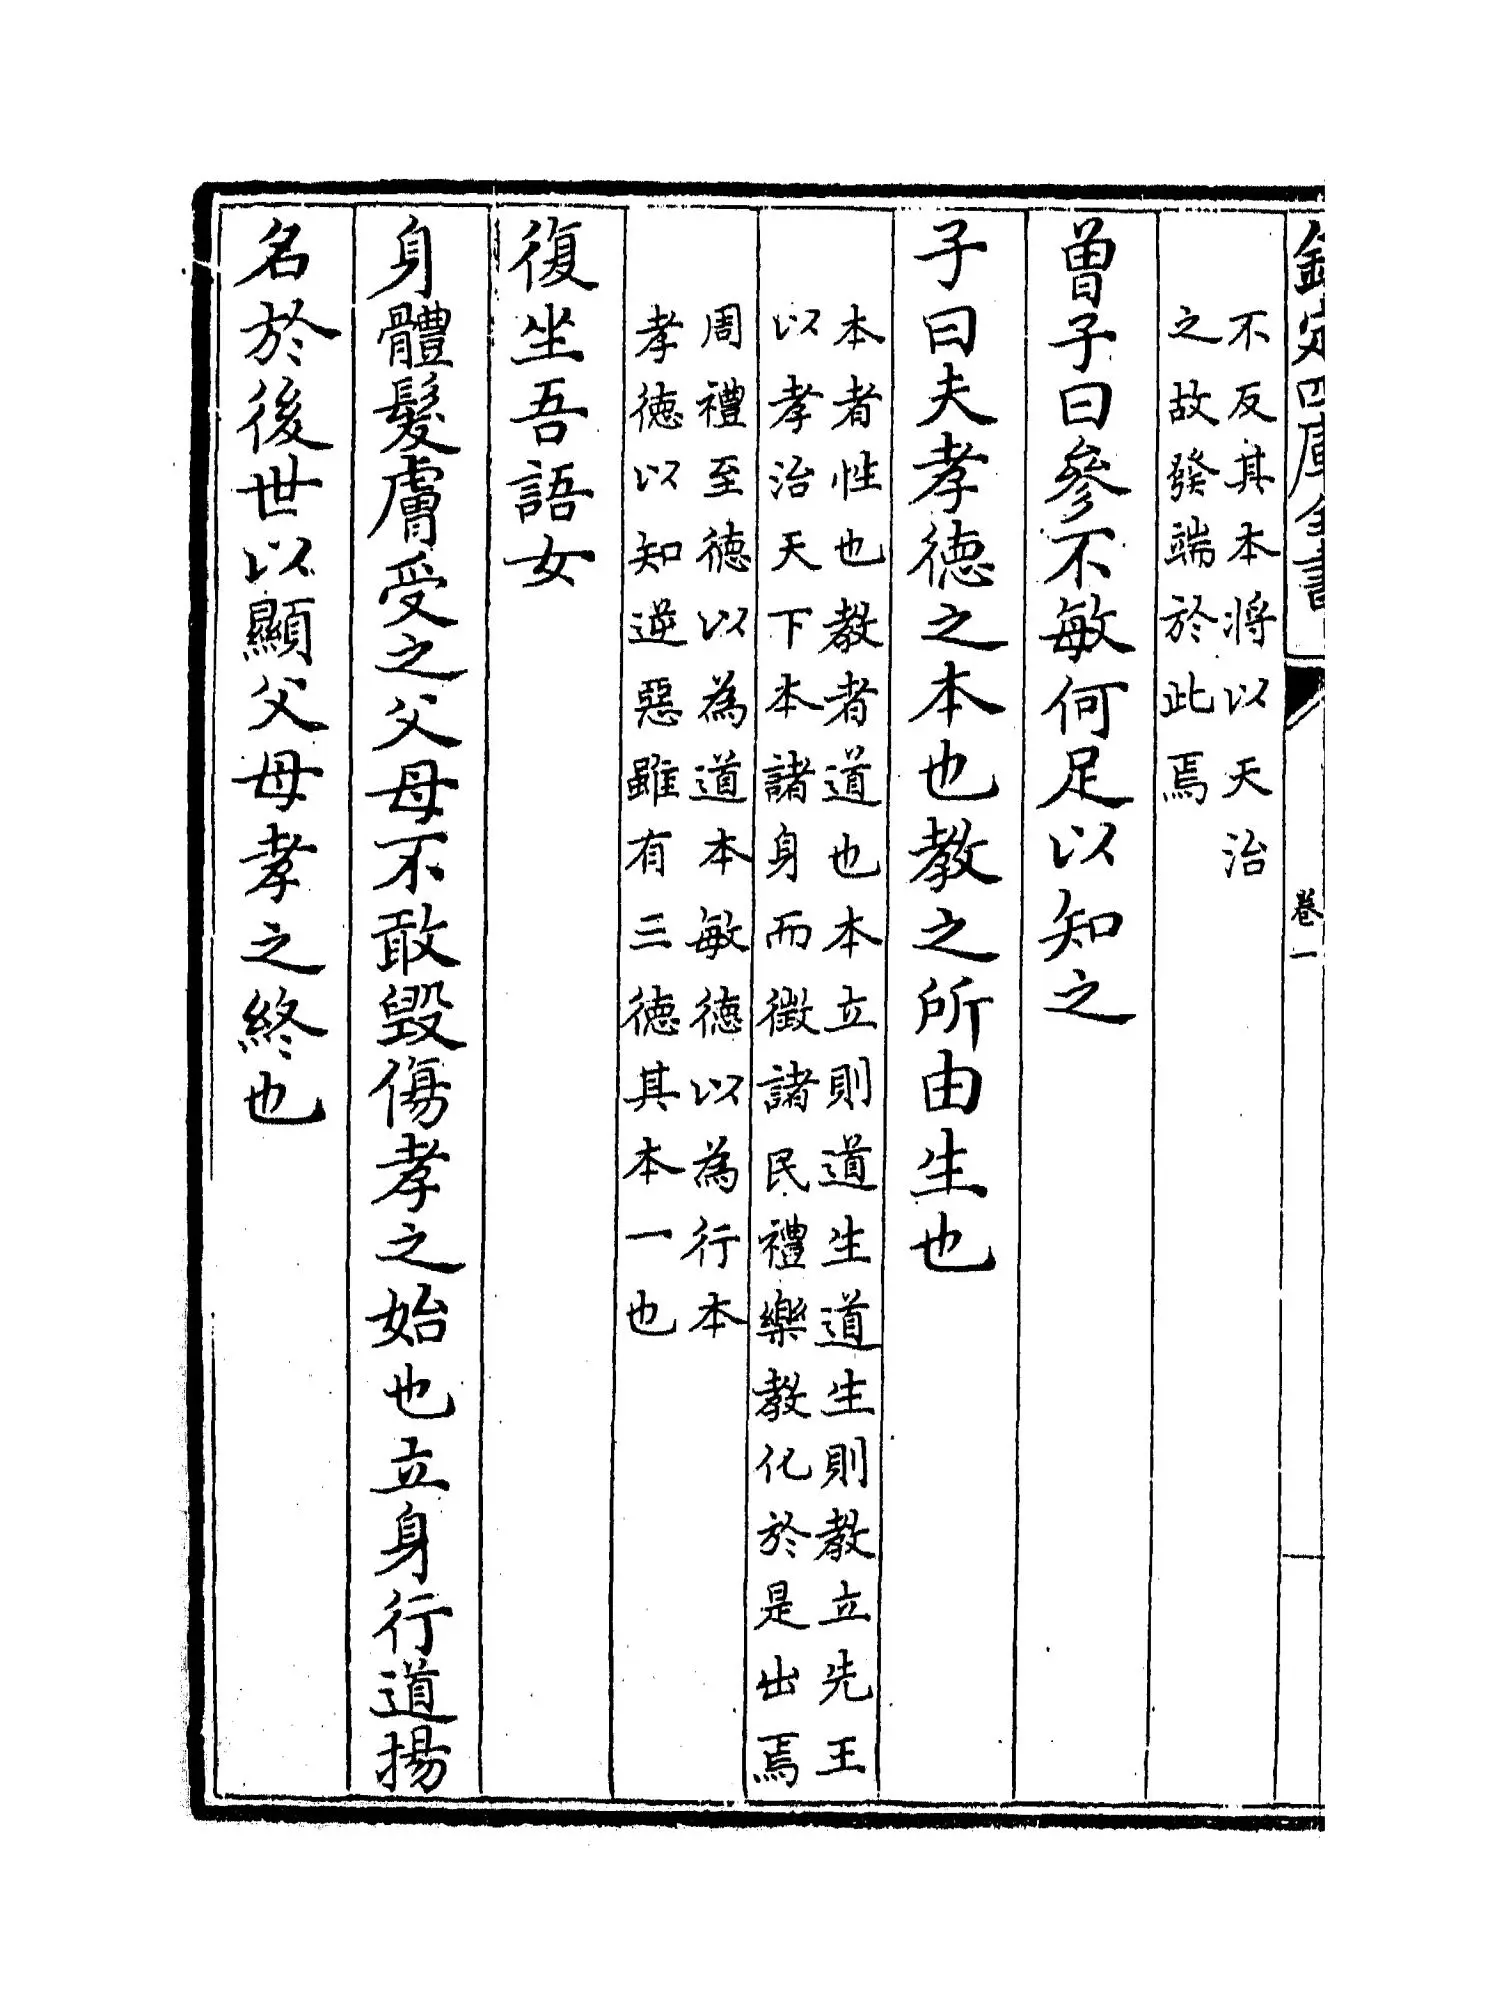 欽定四庫全書
卷一
不反其本將以天治
之故發端於此焉
曽子曰參不敏何足以知之
子曰夫孝德之本也教之所由生也
本者性也教者道也本立則道生道生則教立先王
以孝治天下本諸身而徵諸民禮樂教化於是出焉
周禮至德以為道本敏德以為行本
孝德以知逆惡雖有三德其本一也
復坐吾語女
身體髮膚受之父母不敢毀傷孝之始也立身行道揚
名於後世以顯父母孝之終也